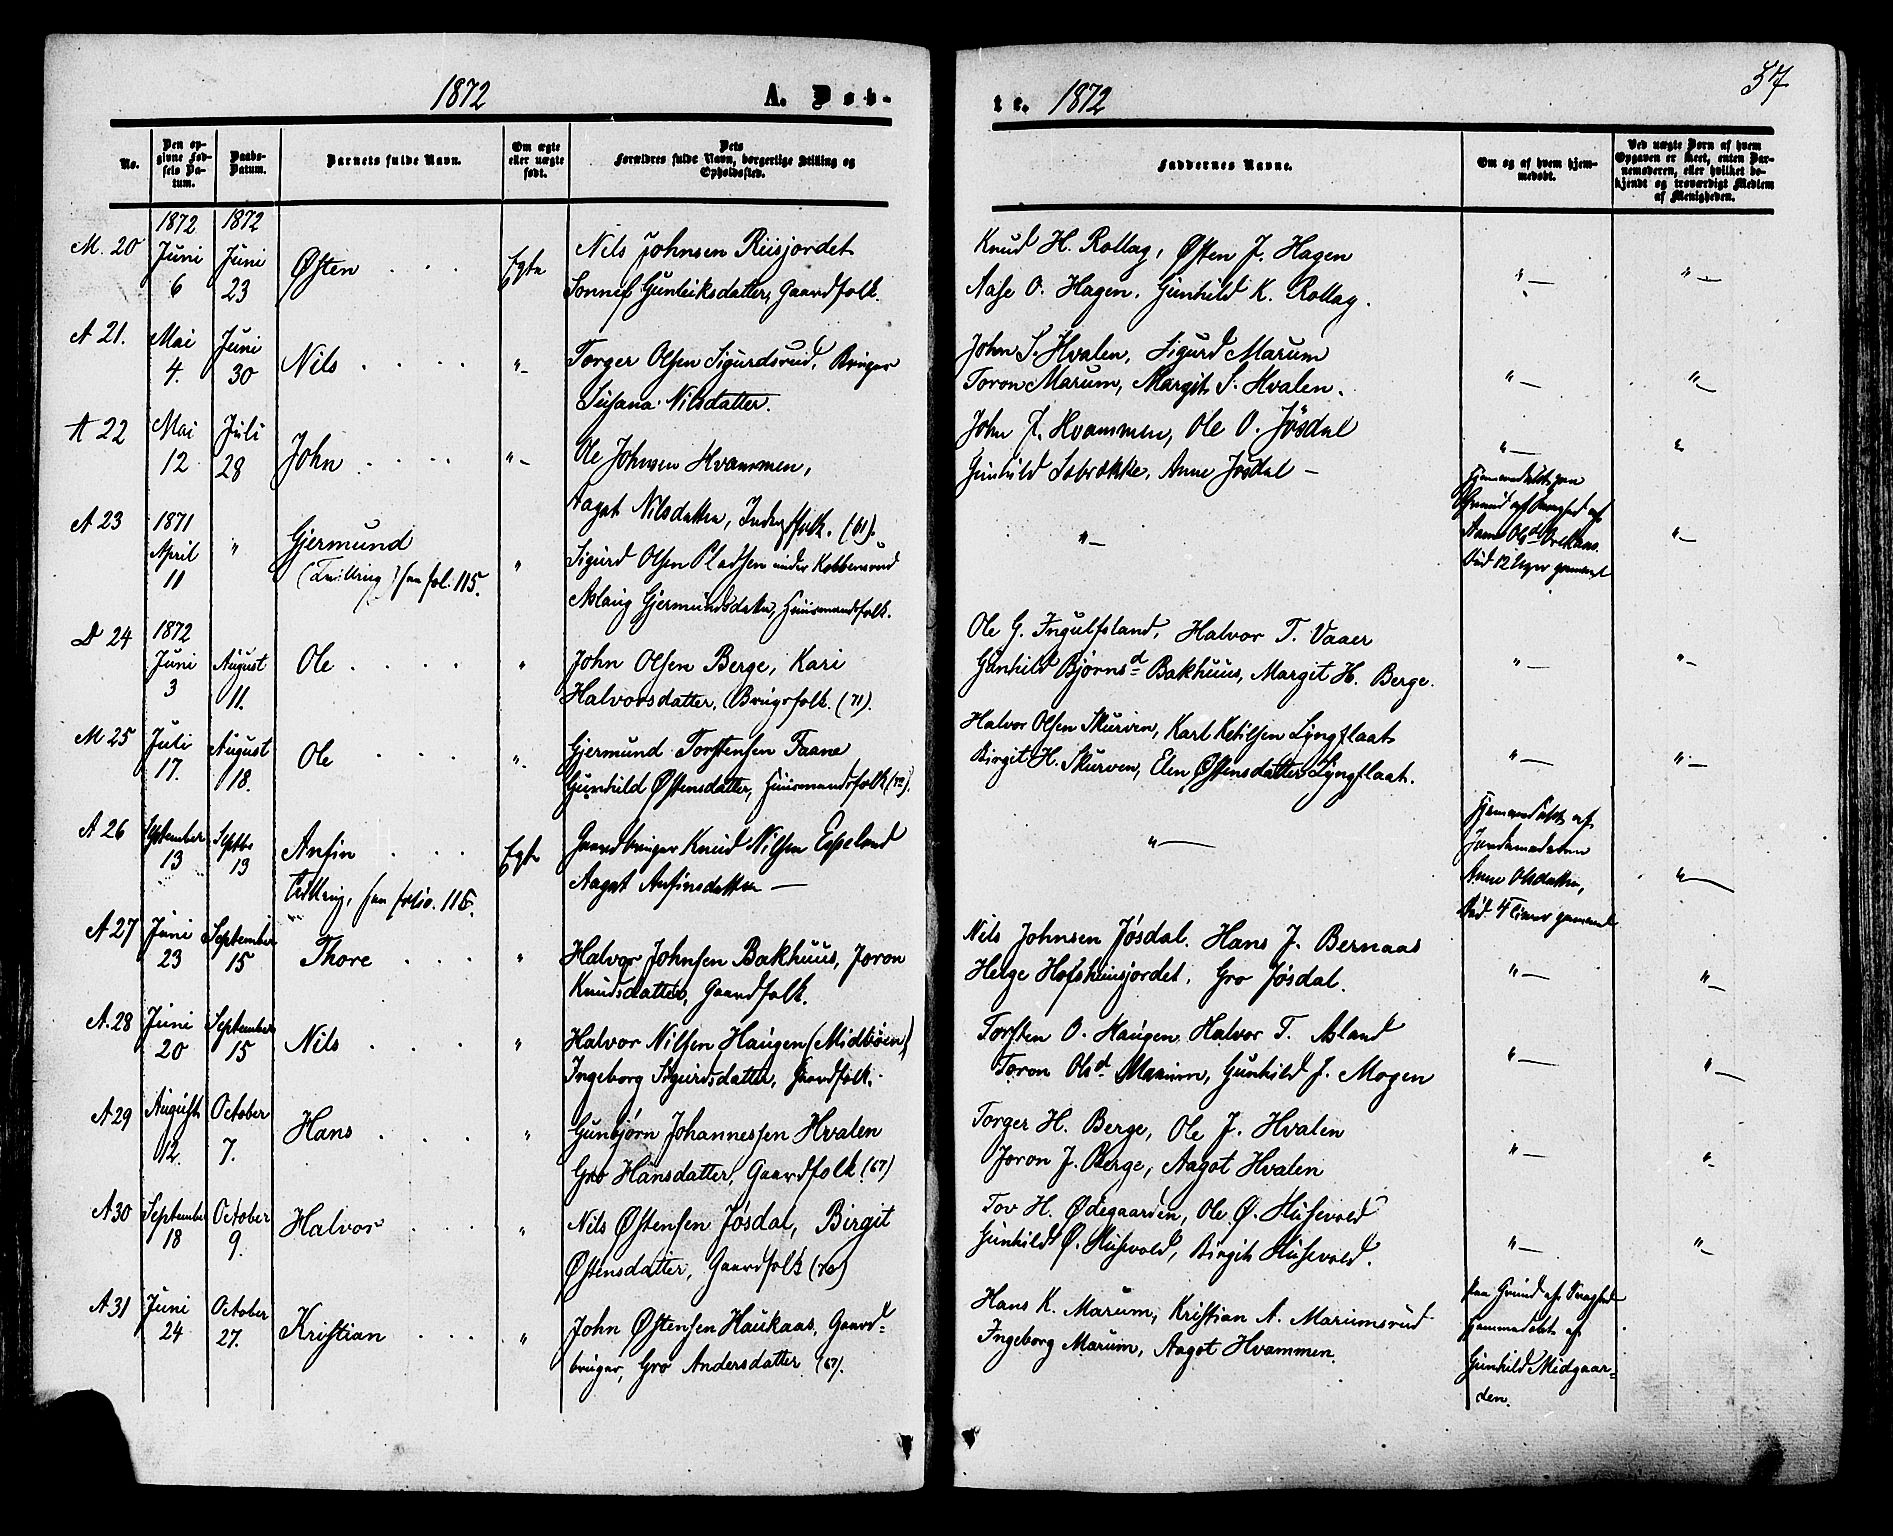 1872
A. Døb-
No.
Den op-
givne Fød-
sels Da-
tum.
Daabs-
Datum.
Barnets fulde Navn.
Om ægte
eller uægte
født.
Dets
Forældres fulde Navn, borgerlige Stilling og
Opholdssted.
1872 1872
M. 20 Juni 6 Juni 23 Østen Egte Nils Johnsen Riisjordet
Sonnef Gunleiksdatter, Gaardfolk.
A 21. Mai 4. Juni 30 Nils "- Torger Olsen Sigurdsrud, Bruger
Susana Nilsdatter.
A 22 Mai 12 Juli 28 John "- Ole Johnsen Hvammen,
Aagat Nilsdatter, Inderstfolk. (61).
A 23 1871 April 11 " Gjermund " Sigurd Olsen Pladsen under Kobbersrud
(Tvilling) fol. 115. Aslaug Gjermundsdatter, Huusmandsfolk.
D 24 1872 Juni 3 August 11. Ole " John Olsen Berge, Kari
Halvorsdatter, Brugsfolk. (71).
M 25 Juli 17. August 18. Ole ". Gjermund Torstensen Faane
Gunhild Østensdatter, Huusmandsfolk (72).
A 26 September 13 Septbr 13 Anfin Egte Gaardbruger Knud Nilsen Espeland
Tvilling, folio. 115. Aagat Anfinsdatter —
A 27 Juni 23 September 15 Thore " Halvor Johnsen Bakhuus, Joron
Knudsdatter, Gaardfolk.
A. 28 Juni 20 September 15 Nils " Halvor Nilsen Haugen (Midbøen)
Ingeborg Sigurdsdatter, Gaardfolk.
A 29 August 12. October 7. Hans " Gunbjørn Johannessen Hvalen
Gro Hansdatter, Gaardfolk (67)
A 30 September 18 October 9. Halvor " Nils Østensen Jøsdal, Birgit
Østensdatter, Gaardfolk (70)
A 31 Juni 24 October 27. Kristian " John Østensen Haukaas, Gaard-
bruger, Gro Andersdatter (67).
te. 1872
57
Faddernes Navne.
Om og af hvem hjem-
medøbt.
Ved uægte Børn af hvem
Opgaven er skeet, enten Bar-
nemoderen, eller hvilket be-
kjendt og troværdigt Medlem
af Menigheden.
Knud H. Rollag, Østen J. Hagen
Aase O. Hagen, Gunhild K. Rollag. "— "—
John S. Hvalen, Sigurd Marum
Toron Marum, Margit S. Hvalen. "— "—
John J. Hvammen, Ole O. Jøsdal
Gunhild Løbrække, Anne Jøsdal — "— "
"— Hjemmedøbt paa
Grund af Svaghed af
Anne Olsd "—
Ved 12 gammel
Ole G. Ingulfsland, Halvor T. Vaaer
Gunhild Bjørnsd Bakhuus, Margit H. Berge. "— "—
Halvor Olsen Skurven, Karl Ketilsen Lyngflaat
Birgit H. Skurven, Elen Østensdatter Lyngflaat. "— "—
"— Hjemmedøbt af
Jordemoderen
Anne Olsdatter, "—
Ved 4 Timer gammel
Nils Johnsen Jøsdal, Hans J. Bernaas
Helge Hofsheimsjordet, Gro Jøsdal. "— "—
Torsten O. Haugen, Halvor T. Asland
Toron Olsd Marum, Gunhild J. Mogen "— "—
Torger H. Berge, Ole J. Hvalen
Joron J. Berge, Aagot Hvalen "— "-
Tov H. Ødegaarden, Ole Ø. Husevold
Gunhild Ø. Husevold, Birgit Husevold. "— "—
Hans K. Marum, Kristian A. Marumsrud paa Grund af Svaghed
Ingeborg Marum, Aagot Hvammen. hjemmedøbt af
Gunhild Midgaar-
den.